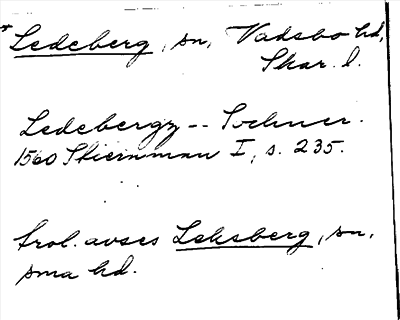 * Ledeberg, sn, Vadsbo hd,
Skar. l.
Ledebergz -- Sochner.
1560 Stiernman I, s. 235.
trol. avses Leksberg, sn,
sma hd.